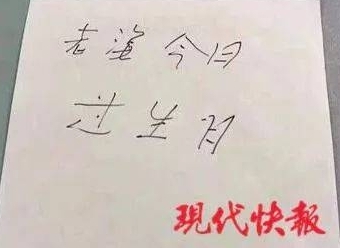 老海今日
过生日
现代快报